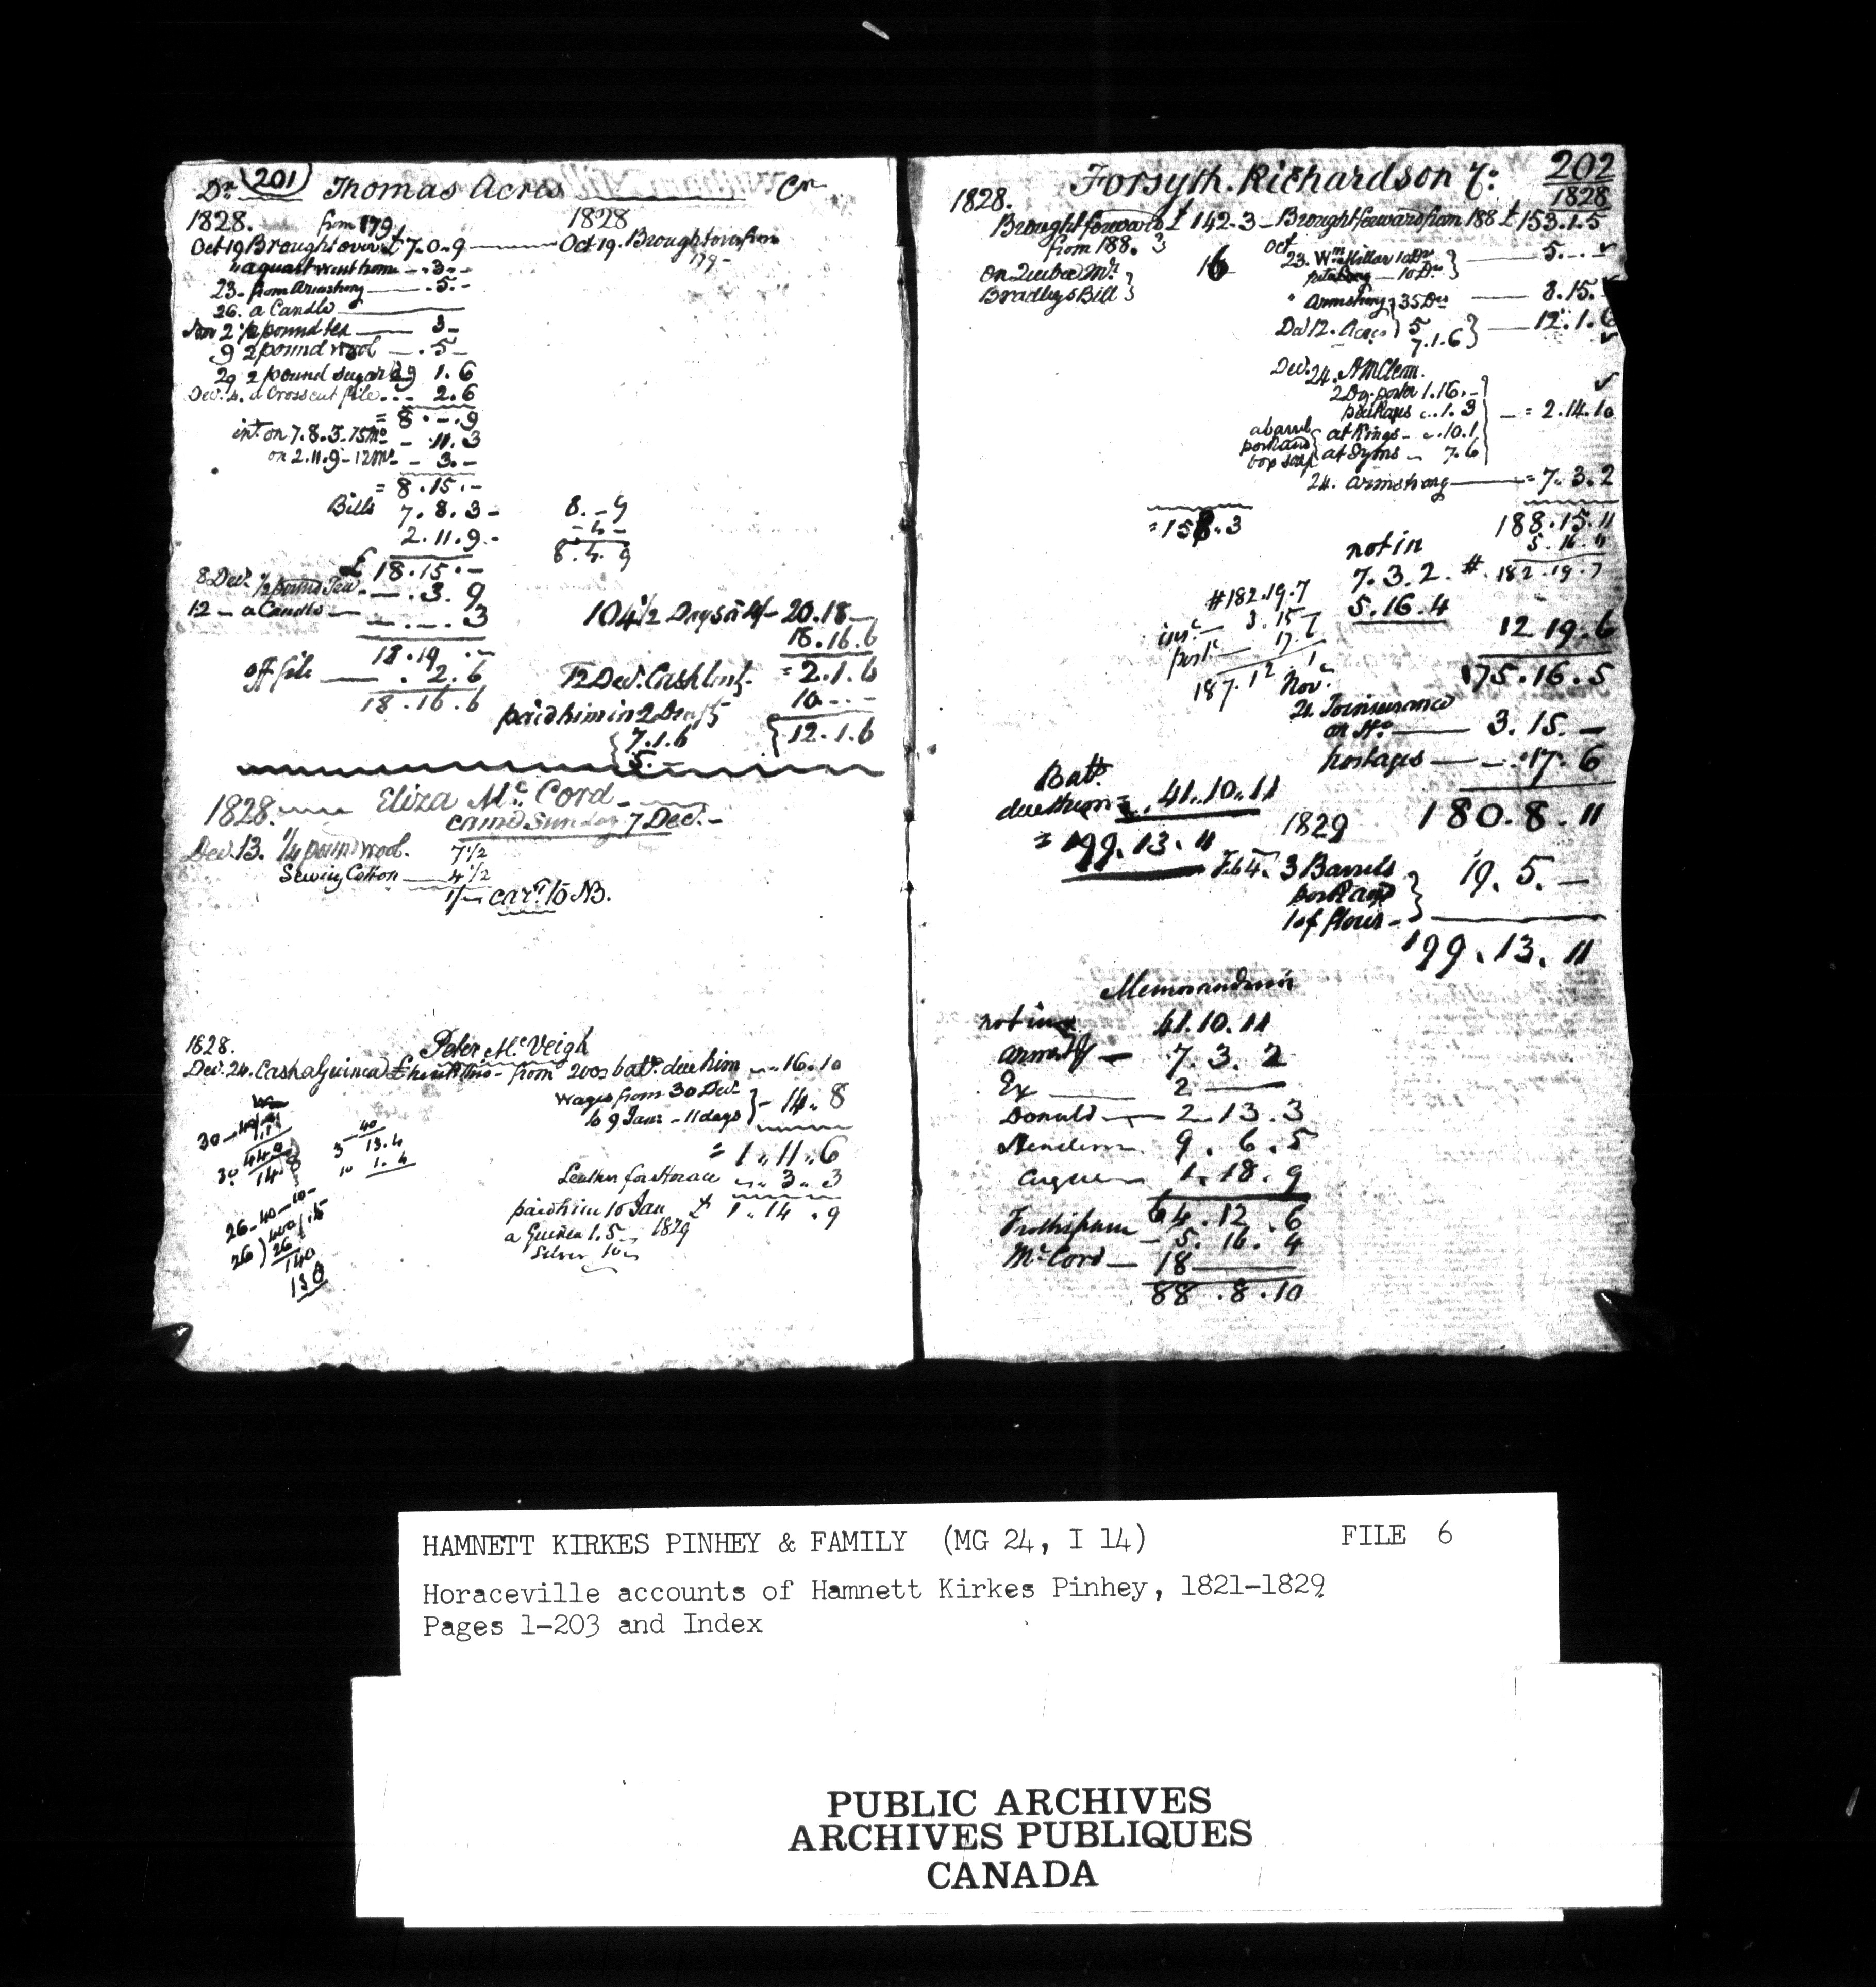 Dr. 201 Thomas Acres Cr
1828. from 179
Oct 19 Brought over £ 7.0.9
" a quart went home - . 3 . -
23 - from Armstrong - . 5 . -
26. a Candle
Nov 2 1/2 pound tea - 3 -
9 2 pound wool - . 5 -
29 2 pound sugar 1.6
Dec. 4. a Crosscut file - - - 2.6
= 8 . - . 9
int. on 7.8.3 - 15 mo - 11.3
on 2.11.9 - 12 mo - 3. -
= 8.15. -
Bills 7.8.3 -
2.11.9. -
£ 18.15. -
8 Dec. 1/2 pound Tea - - . 3 . 9
12 - a Candle - - . - . 3
18.19 . -
off file - . 2.6
18.16.6
1828
Oct 19. Brought over from
179 -
8 . - 9
- 4 -
8.4.9
104 1/2 Days a 4/- 20.18 -
18.16.6
= 2.1.6
12 Dec. Cash lent. 10 - . -
paid him in 2 Drafts 12.1.6
7.1.6
5. -
1828. Eliza Mc Cord -
came Sunday 7 Dec. -
Dec. 13. 1/4 pound wool. 7 1/2
Sewing Cotton 4 1/2
1/- car. to NB.
1828. Peter McVeigh
Dec. 24. Cash a Guinea from 200 bal. due him - 16.10
wages from 30 Dec.
to 9 Jan. - 11 days } - 14.8
= 1.11.6
Leather for Horace - 3.3
paid him 10 Jan £ 1.14.9
a Guinea 1.5 - 1829
Silver 10
30 - 40
440
30
14
40
5 - 13.4
10 1.4
26 - 40 - 10 -
26 ) 400 / 15
26
140
130
202
Forsyth. Richardson Co: 1828
1828.
Brought forward £ 142.3 -
from 188. 3
on Quebec Mr. 16
Bradleys Bill
= 158.3
Brought forward from 188 £ 153.1.5
Oct 23. Wm Millar 10 Drs
10 Drs } 5 . - . -
" Armstrong 35 Drs 8.15. -
Dec 12. Acres 5
7.1.6 } 12.1.6
Dec. 24. A McLean.
2 Dz. porter 1.16. -
packages - . 1.3 - = 2.14.10
a barrel
pork and
box soap
at Kings - . 10.1
at Syms - 7.6
24. Armstrong = 7.3.2
188.15.11
5.16.4
# 182.19.7
not in
7.3.2.
5.16.4
12.19.6
175.16.5
# 182.19.7
ins. - 3.15
post. - 17.6
187.12.1
Nov.
21. To insurance
on Ho. 3.15. -
postages - - . 17.6
180.8.11
Bal.
due them = 41.10.11
= 199.13.11
1829
Feb 4. 3 Barrels
pork and
1 of flour - } 19.5. -
199.13.11
Memorandum
not in 41.10.11
Armstg - 7.3.2
Ex 2 -
Donald - 2.13.3
9.6.5
1.18.9
64.12.6
5.16.4
McCord - 18 -
88.8.10
HAMNETT KIRKES PINHEY & FAMILY (MG 24, I 14) FILE 6
Horaceville accounts of Hamnett Kirkes Pinhey, 1821-1829
Pages 1-203 and Index
PUBLIC ARCHIVES
ARCHIVES PUBLIQUES
CANADA